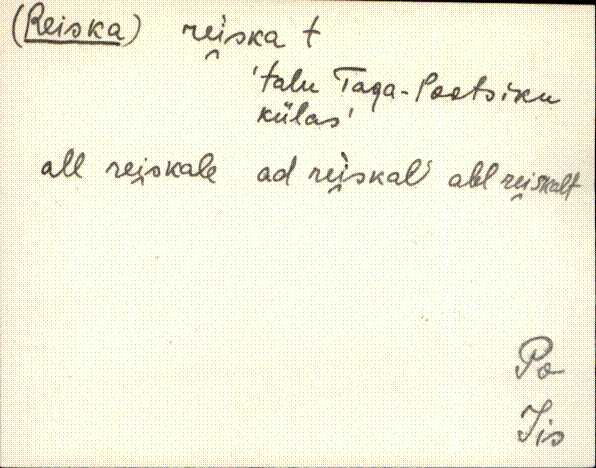 (Reiska) rei̯ska t
'talu Taga-Pootsiku
külas'
all rei̯skale ad rei̯skal' abl rei̯skalt
Po
Jis